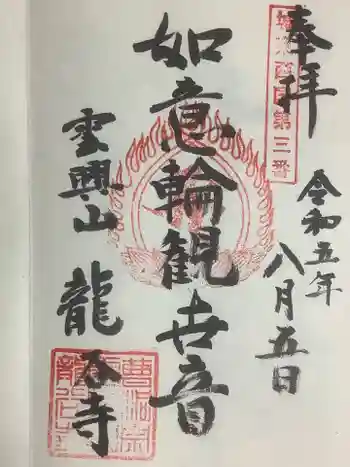 奉拝
西国第三番
令和五年
八月五日
如意輪観世音
雲興山 龍 寺
曹洞宗